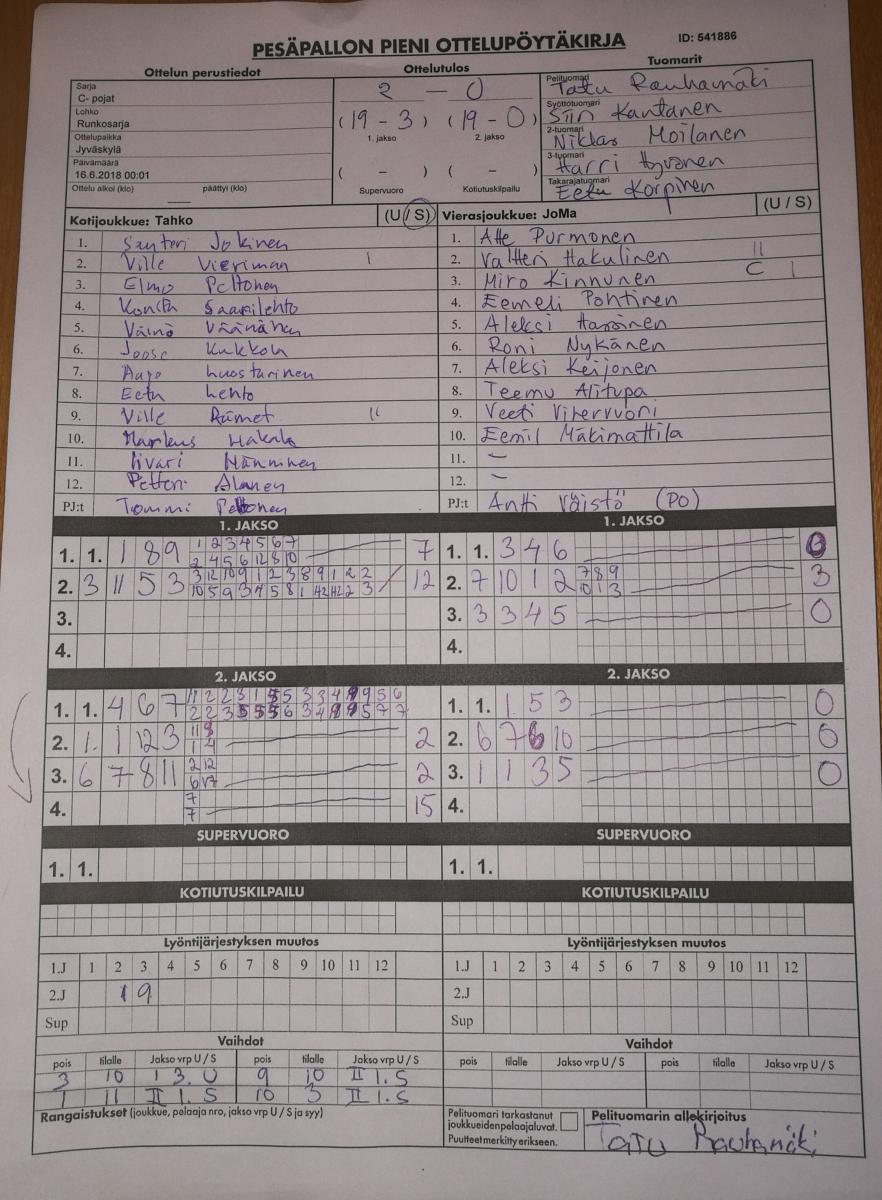 PESÄPALLON PIENI OTTELUPÖYTÄKIRJA
ID: 541886
Ottelun perustiedot
Ottelutulos
Tuomarit
Sarja
C- pojat
Lohko
Runkosarja
Ottelupaikka
Jyväskylä
Päivämäärä
16.6.2018 00:01
Ottelu alkoi (klo) päättyi (klo)
2 — 0
(19 - 3) (19 - 0)
1. jakso 2. jakso
( - ) ( - )
Supervuoro Kotiutuskilpailu
Pelituomari
Tatu Rauhamäki
Syöttötuomari
Siiri Kantanen
2-tuomari
Niklas Moilanen
3-tuomari
Harri Hyvönen
Takarajatuomari
Eetu Korpinen
Kotijoukkue: Tahko (U / S)
1. Santeri Jokinen
2. Ville Vieriman |
3. Elmo Peltonen
4. Konsta Saarilehto
5. Väinö Väänänen
6. Joose Kukkola
7. Aapo Luostarinen
8. Eetu Lehto
9. Ville Rämet ||
10. Markus Hakala
11. Iivari Männinen
12. Petteri Alanen
PJ:t Tommi Peltonen
Vierasjoukkue: JoMa (U / S)
1. Atte Purmonen
2. Valtteri Hakulinen ||
3. Miro Kinnunen C |
4. Eemeli Pöntinen
5. Aleksi
6. Roni Nykänen
7. Aleksi Keijonen
8. Teemu Alitupa
9. Veeti Vitervuori
10. Eemil Mäkimattila
11. —
12. —
PJ:t Antti Väistö (PO)
1. JAKSO
1. 1. 1 8 9 1 2 3 4 5 6 7 7
2 4 5 6 12 8 10
2. 3 11 5 3 3 12 10 9 1 2 3 8 9 1 2 2 12
3.
4.
1. JAKSO
1. 1. 3 4 6 0
2. 7 10 1 2 7 8 9 3
10 1 3
3. 3 3 4 5 0
4.
2. JAKSO
1. 1. 4 6 7
2. 1. 1 12 3 2
3. 6 7 8 11 2 12 2
4. 7 15
7
2. JAKSO
1. 1. 1 5 3 0
2. 6 7 6 10 0
3. 1 1 3 5 0
4.
SUPERVUORO
1. 1.
SUPERVUORO
1. 1.
KOTIUTUSKILPAILU
KOTIUTUSKILPAILU
Lyöntijärjestyksen muutos
1.J 1 2 3 4 5 6 7 8 9 10 11 12
2.J 1 9
Sup
Lyöntijärjestyksen muutos
1.J 1 2 3 4 5 6 7 8 9 10 11 12
2.J
Sup
Vaihdot
pois tilalle Jakso vrp U / S pois tilalle Jakso vrp U / S
3 10 I 3. U 9 10 II 1. S
1 11 II 1. S 10 3 II 1. S
Vaihdot
pois tilalle Jakso vrp U / S pois tilalle Jakso vrp U / S
Rangaistukset (joukkue, pelaaja nro, jakso vrp U / S ja syy)
Pelituomari tarkastanut
joukkueidenpelaajaluvat.
Puutteet merkitty erikseen.
Pelituomarin allekirjoitus
Tatu Rauhamäki